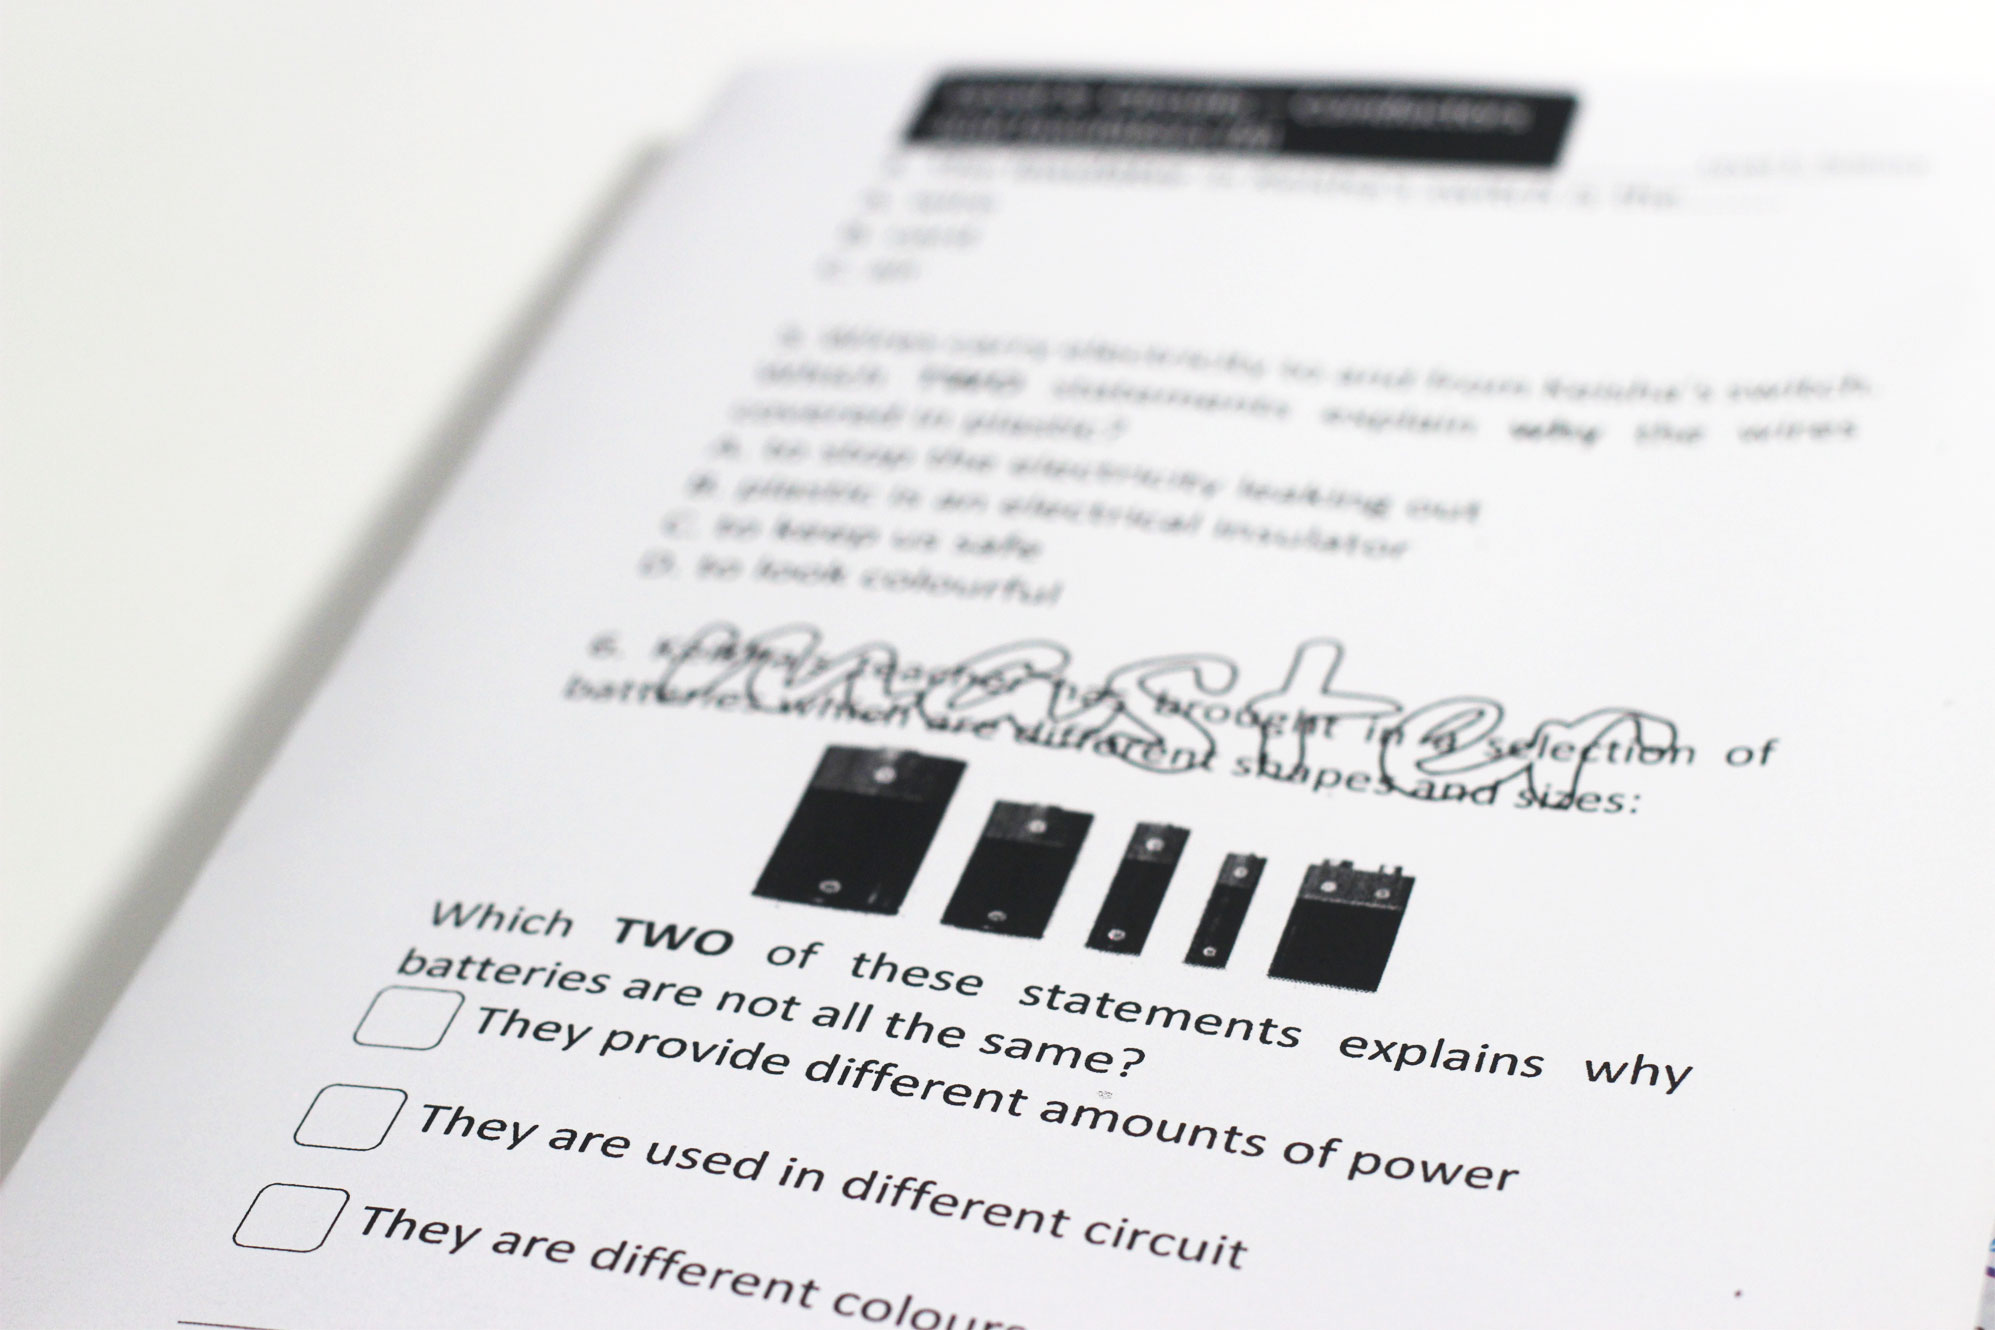 5. Wires carry electricity to and from switch.
Which TWO statements explain why the wires
covered in plastic?
A. to stop the electricity leaking out
B. plastic is an electrical insulator
C. to keep us safe
D. to look colourful
master
6. teacher has brought in a selection of
batteries which are different shapes and sizes:
Which TWO of these statements explains why
batteries are not all the same?
They provide different amounts of power
They are used in different circuit
They are different colours